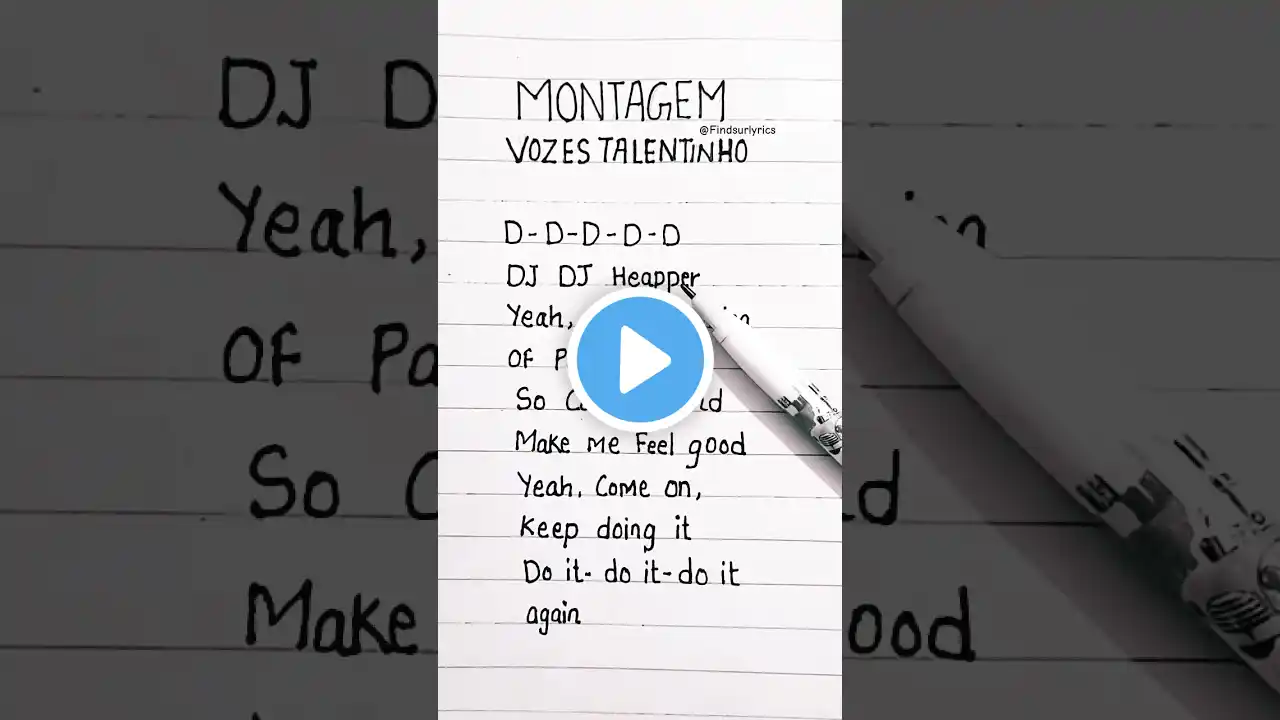 MONTAGEM
@Findsurlyrics
VOZES TALENTINHO
D-D-D-D-D
DJ DJ Heapper
Yeah,
OF P
So
Make me Feel good
Yeah, Come on,
Keep doing it
Do it- do it-do it
again